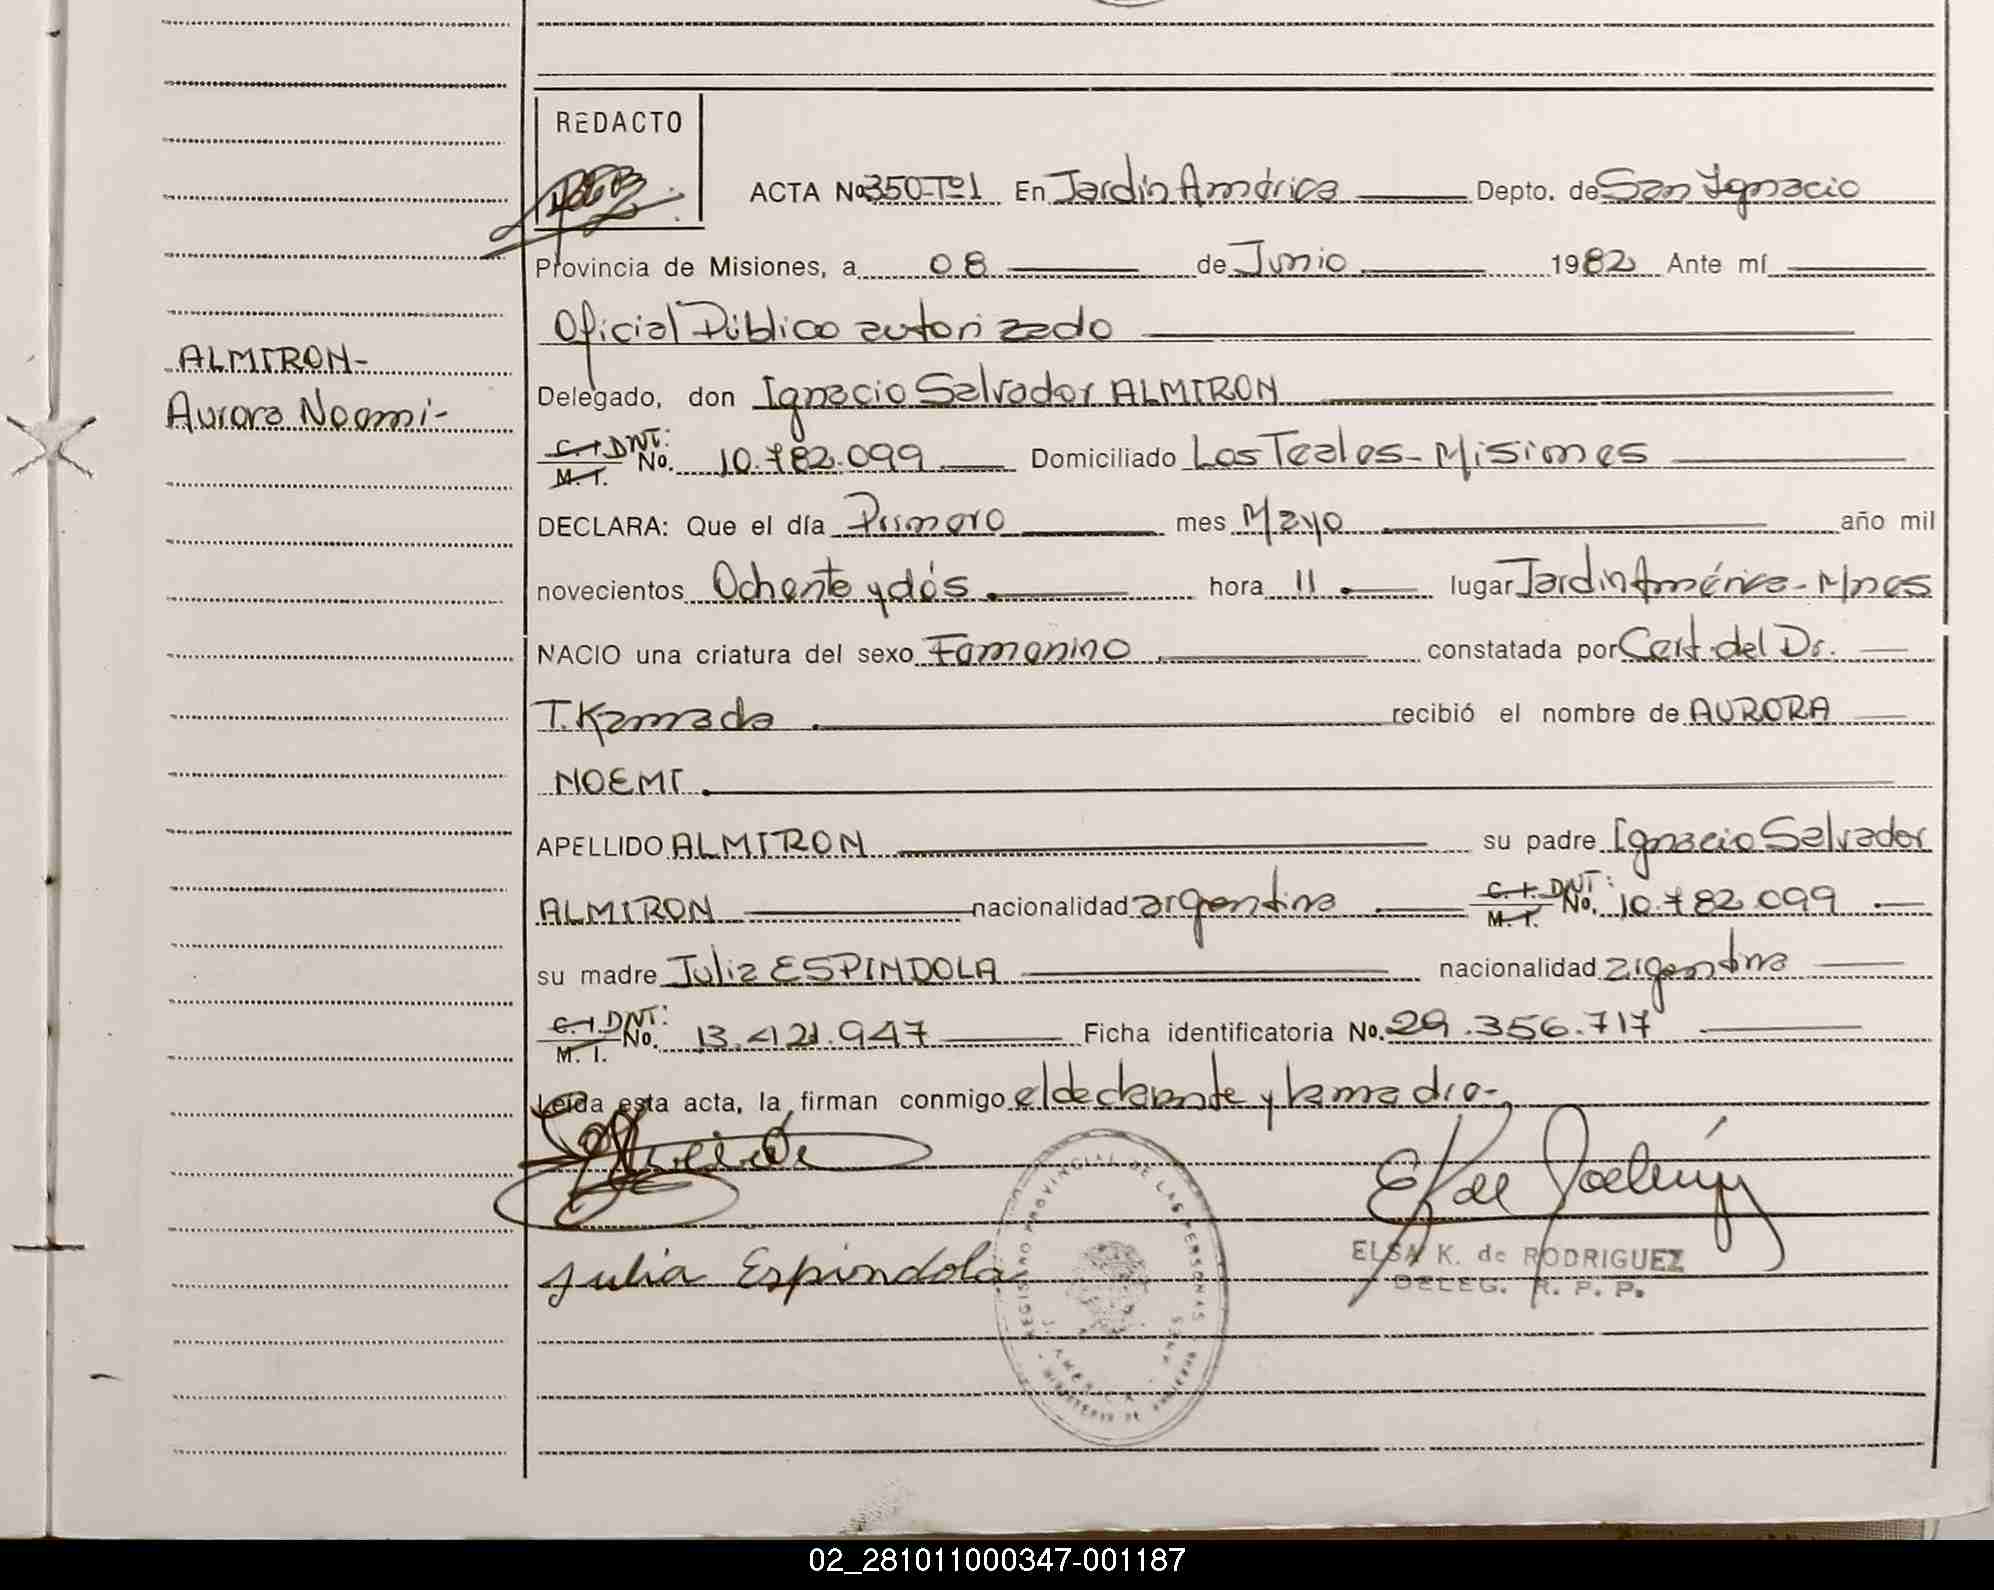 REDACTO
ACTA No 350-Tº1 En Jardín América Depto. de San Ignacio
Provincia de Misiones, a 08 de Junio 1982 Ante mí
Oficial Público autorizado
ALMIRON-
Aurora Noemi-
Delegado, don Ignacio Salvador ALMIRON
C.I. DNI: M.I. No. 10.782.099 Domiciliado Los Teales-Misiones
DECLARA: Que el día Primero mes Mayo año mil
novecientos Ochenta y dós. hora 11. lugar Jardín América-Mnes
NACIO una criatura del sexo Femenino constatada por Cert. del Dr.
T. Kamada. recibió el nombre de AURORA
NOEMI.
APELLIDO ALMIRON su padre Ignacio Salvador
ALMIRON nacionalidad argentina C.I. DNI: M.I. No. 10.782.099
su madre Julia ESPINDOLA nacionalidad argentina
C.I. DNI: M.I. No. 13.421.947 Ficha identificatoria No. 29.356.717
Leída esta acta, la firman conmigo el declarante y la madre-
Julia Espindola
REGISTRO PROVINCIAL DE LAS PERSONAS
ELSA K. de RODRIGUEZ
DELEG. R. P. P.
02_281011000347-001187